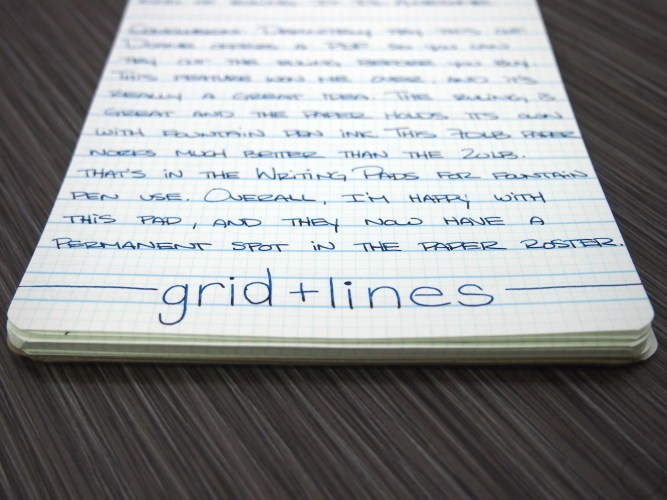 Conclusion: Definitely try this out.
Doane offers a PDF so you can
try out the ruling before you buy.
This feature won me over and it's
really a great idea. The ruling is
great and the paper holds its own
with fountain pen ink. This 70lb paper
works much better than the 20lb.
that's in the Writing Pads for fountain
pen use. Overall, I'm happy with
this pad, and they now have a
permanent spot in the paper roster.
grid+lines